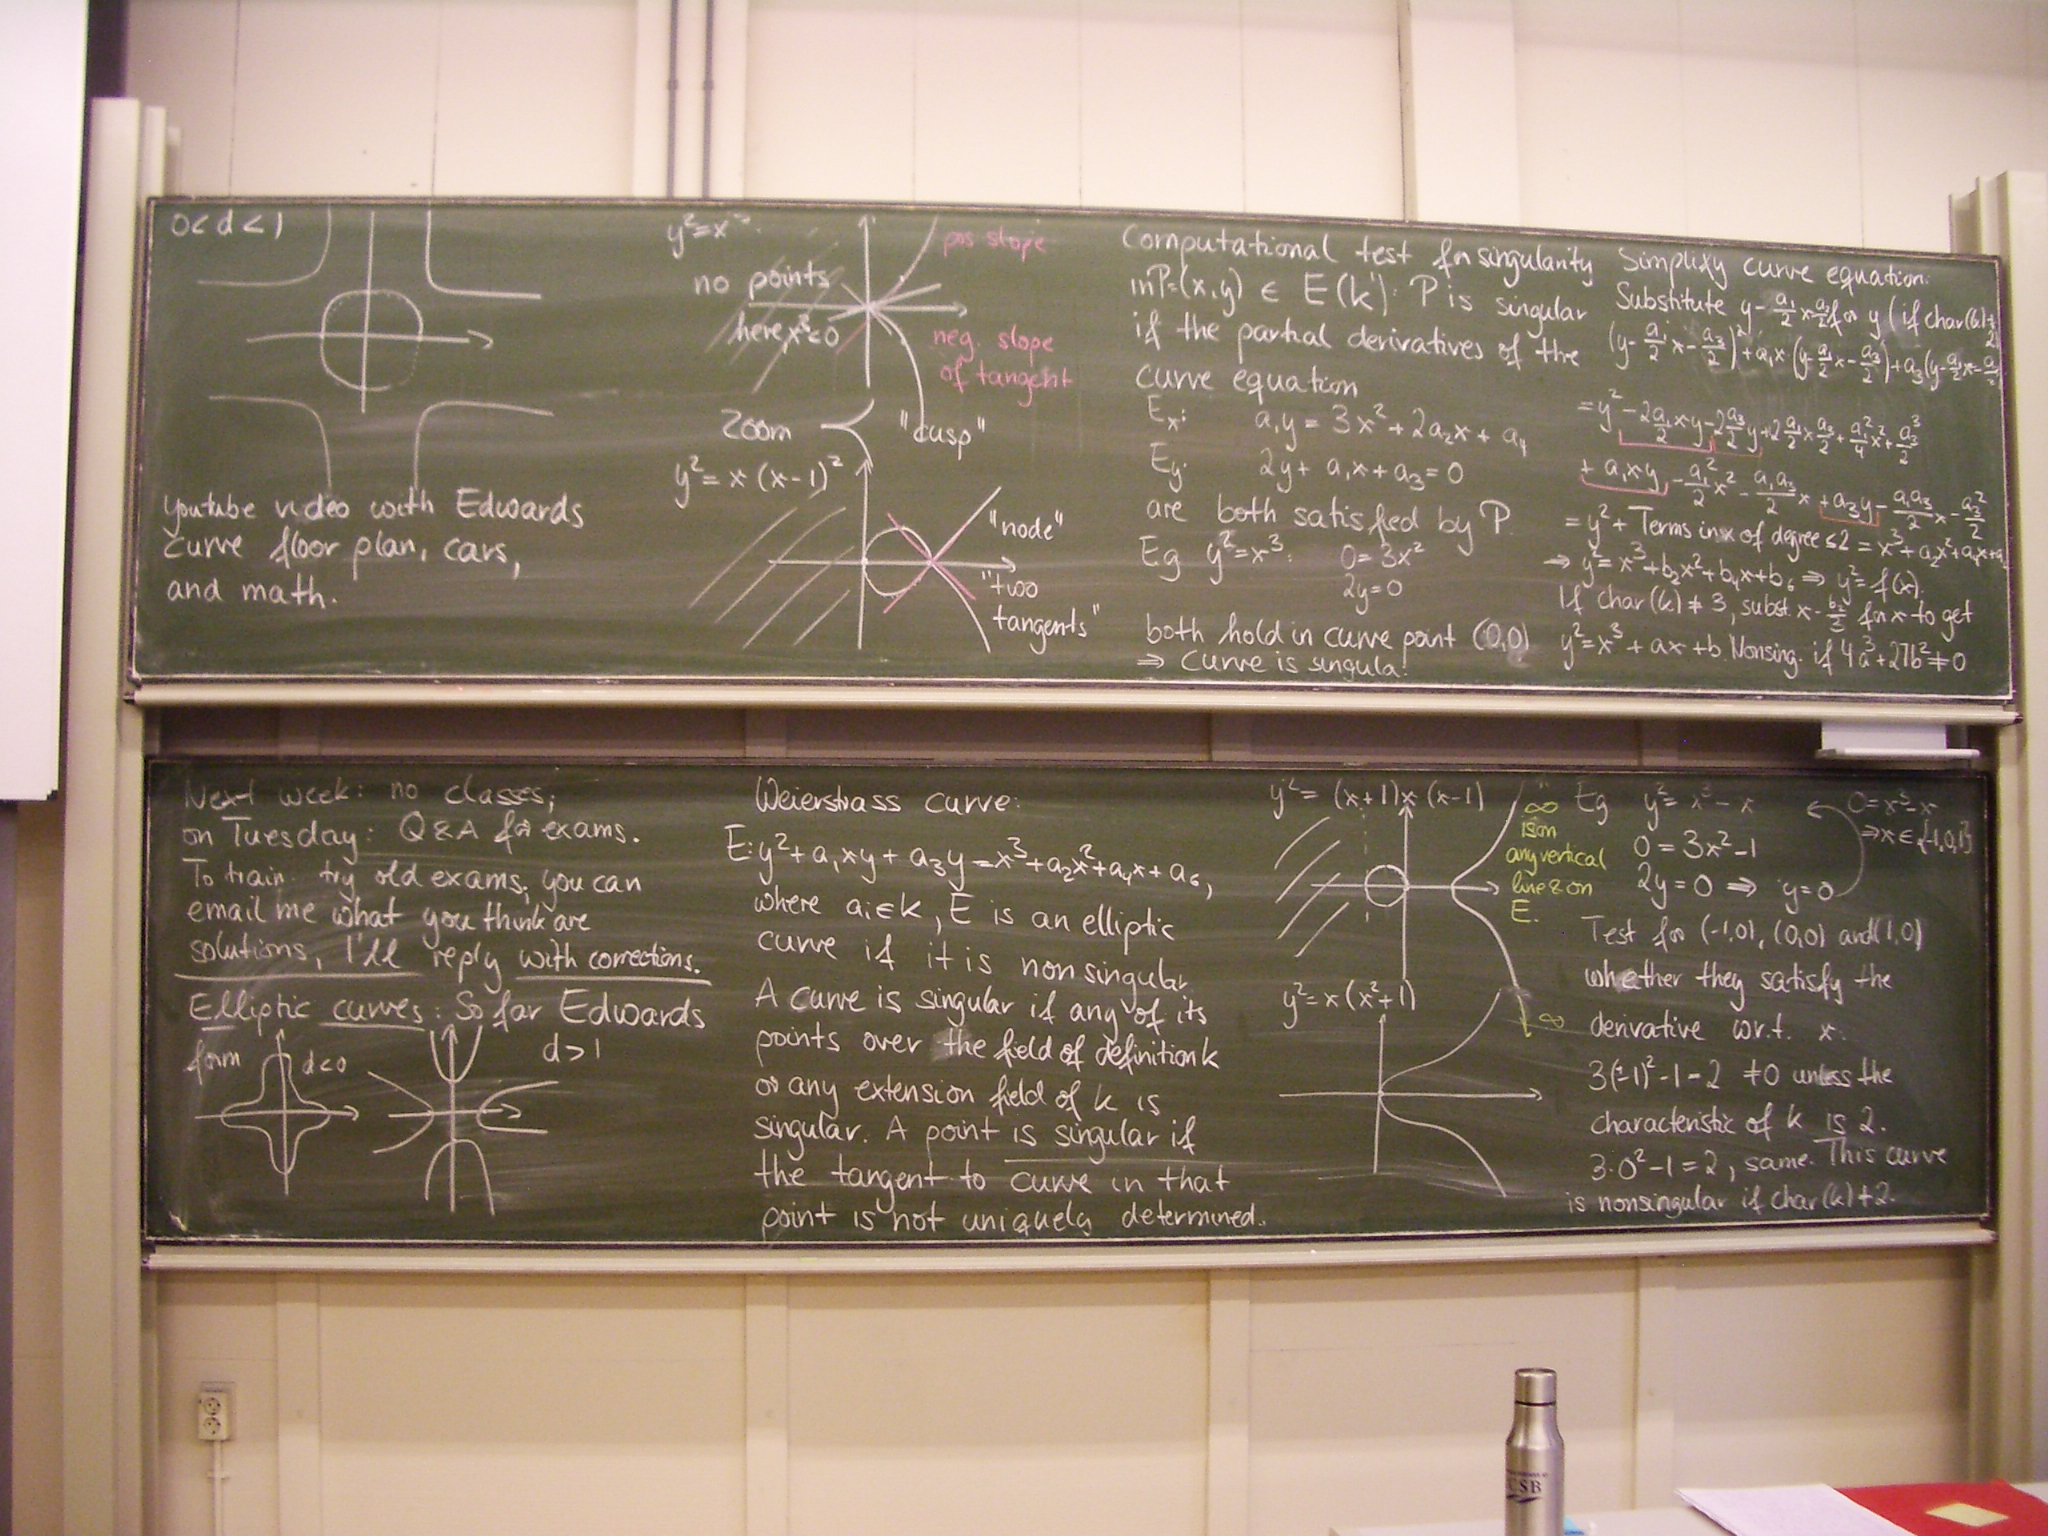 0<d<1
youtube video with Edwards
curve floor plan, cars,
and math.
y²=x
no points
here, x³<0
pos slope
neg. slope
of tangent
Zoom
"cusp"
y² = x (x-1)²
"node"
"two
tangents"
Computational test for singularity
in P=(x,y) ∈ E(k'): P is singular
if the partial derivatives of the
curve equation
Ex: a₁y = 3x²+2a₂x+a₄
Ey: 2y+a₁x+a₃=0
are both satisfied by P.
Eg y²=x³: 0=3x²
2y=0
both hold in curve point (0,0)
⇒ Curve is singular!
Simplify curve equation:
Substitute y-a₁/2 x-a₃/2 for y (if char(k)≠
2)
(y-a₁/2 x-a₃/2)²+a₁x·(y-a₁/2 x-a₃/2)+a₃(y-a₁/2 x-a₃/2
=y²-2a₁/2 xy-2a₃/2 y+2a₁/2 x a₃/2+a₁²/4 x²+a₃²/2
+a₁xy-a₁²/2 x²-a₁a₃/2 x+a₃y-a₁a₃/2 x-a₃²/2
=y²+Terms in x of degree ≤2=x³+a₂x²+a₄x+a₆
⇒ y²=x³+b₂x²+b₄x+b₆ ⇒ y²=f(x).
If char(k)≠3, subst. x-b₂/3 for x to get
y²=x³+ax+b. Nonsing. if 4a³+27b²≠0
Next week: no classes;
on Tuesday: Q&A for exams.
To train: try old exams; you can
email me what you think are
solutions, I'll reply with corrections.
Elliptic curves: So far Edwards
form d<0 d>1
Weierstrass curve:
E: y²+a₁xy+a₃y=x³+a₂x²+a₄x+a₆,
where aᵢ∈k, E is an elliptic
curve if it is nonsingular.
A curve is singular if any of its
points over the field of definition k
or any extension field of k is
singular. A point is singular if
the tangent to curve in that
point is not uniquely determined.
y² = (x+1)x(x-1)
∞
is on
any vertical
line & on
E.
y²=x(x²+1)
∞
Eg y²=x³-x
0=x³-x
⇒x∈{-1,0,1}
0=3x²-1
2y=0 ⇒ y=0
Test for (-1,0), (0,0) and (1,0)
whether they satisfy the
derivative w.r.t. x:
3(±1)²-1=2 ≠0 unless the
characteristic of k is 2.
3·0²-1=2, same. This curve
is nonsingular if char(k)≠2.
CSB